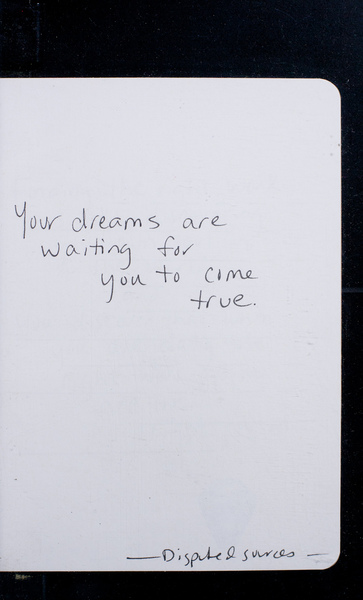 Your dreams are
waiting for
you to come
true.
— Disputed sources —